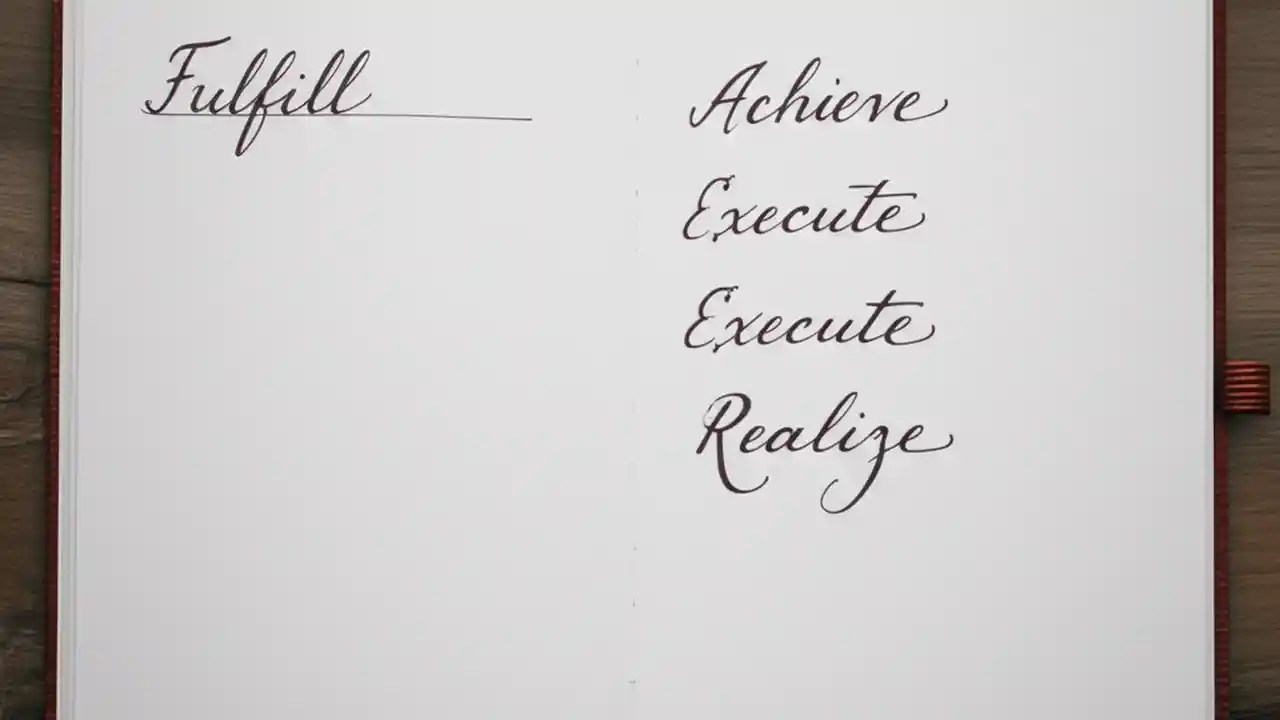 Fulfill
Achieve
Execute
Execute
Realize